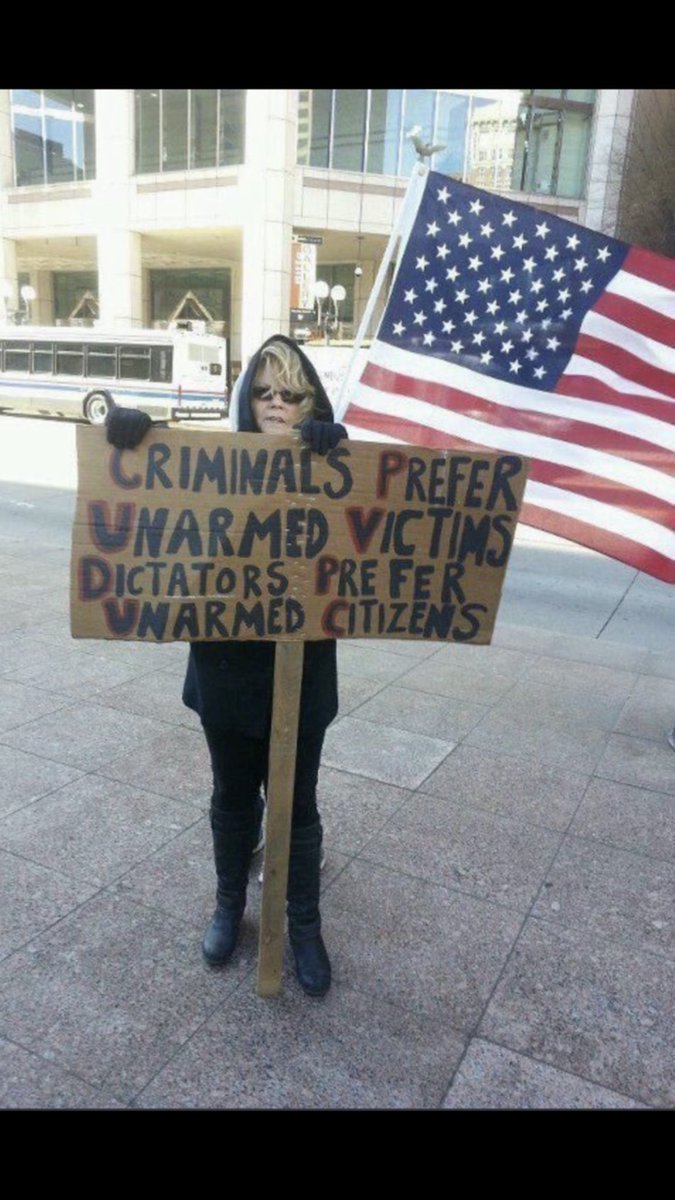 CRIMINALS PREFER
UNARMED VICTIMS
DICTATORS PREFER
UNARMED CITIZENS